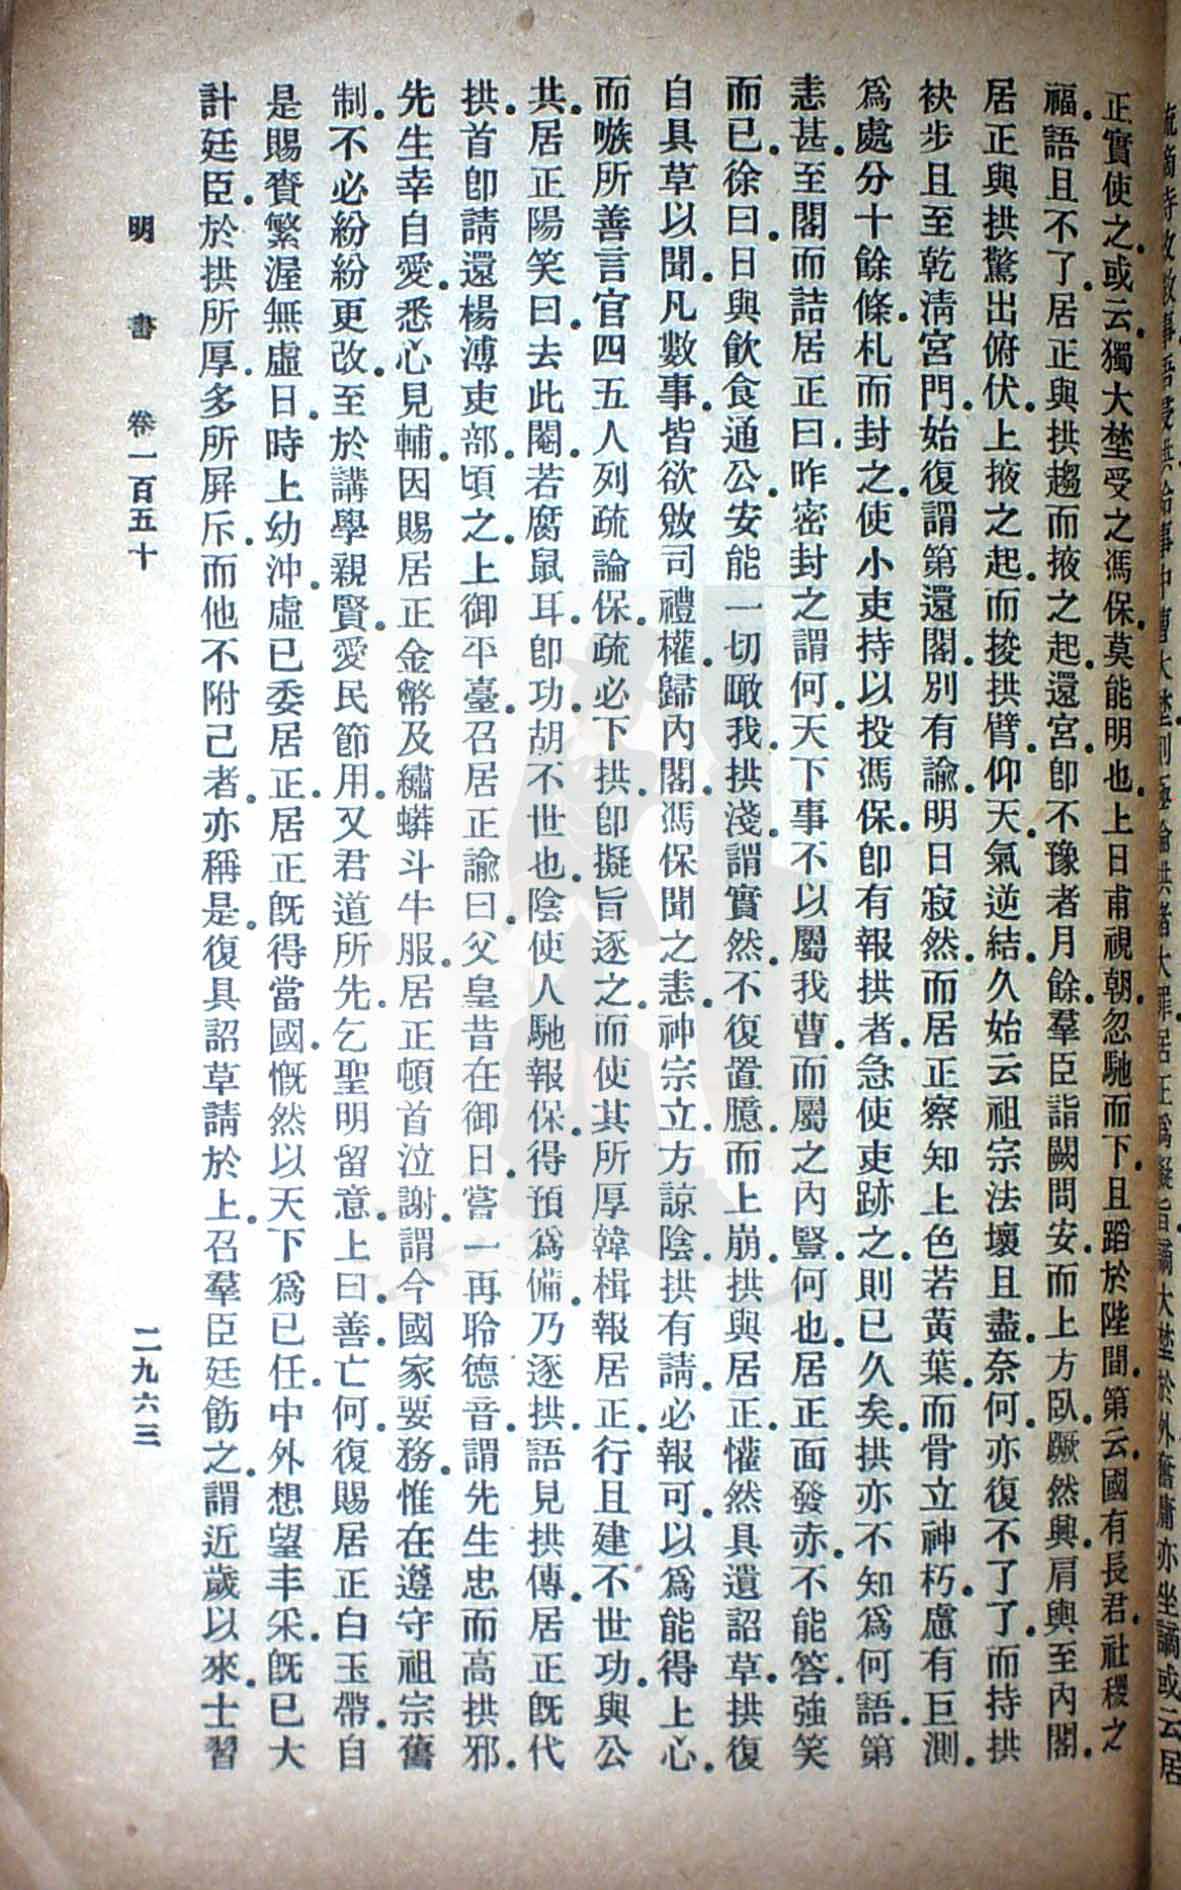 正實使之或云獨大埜受之馮保莫能明也上日甫視朝忽馳而下且蹈於陛間第云國有長君社稷之
福語且不了居正與拱趨而掖之起還宮卽不豫者月餘羣臣詣闕問安而上方臥蹶然興肩輿至內閣
居正與拱驚出俯伏上掖之起而捘拱臂仰天氣逆結久始云祖宗法壞且盡奈何亦復不了了而持拱
袂步且至乾淸宮門始復謂第還閣別有諭明日寂然而居正察知上色若黃葉而骨立神朽慮有叵測
爲處分十餘條札而封之使小吏持以投馮保卽有報拱者急使吏跡之則已久矣拱亦不知爲何語第
恚甚至閣而詰居正曰昨密封之謂何天下事不以屬我曹而屬之內豎何也居正面發赤不能答強笑
而已徐曰日與飮食通公安能一切瞰我拱淺謂實然不復置臆而上崩拱與居正懽然具遺詔草拱復
自具草以聞凡數事皆欲斂司禮權歸內閣馮保聞之恚神宗立方諒陰拱有請必報可以爲能得上心
而嗾所善言官四五人列疏論保疏必下拱卽擬旨逐之而使其所厚韓楫報居正行且建不世功與公
共居正陽笑曰去此閹若腐鼠耳卽功胡不世也陰使人馳報保得預爲備乃逐拱語見拱傳居正旣代
拱首卽請還楊溥吏部頃之上御平臺召居正諭曰父皇昔在御日嘗一再聆德音謂先生忠而高拱邪
先生幸自愛悉心見輔因賜居正金幣及繡蟒斗牛服居正頓首泣謝謂今國家要務惟在遵守祖宗舊
制不必紛紛更改至於講學親賢愛民節用又君道所先乞聖明留意上曰善亡何復賜居正白玉帶自
是賜賚繁渥無虛日時上幼沖虛已委居正居正旣得當國慨然以天下爲已任中外想望丰采旣已大
計廷臣於拱所厚多所屛斥而他不附己者亦稱是復具詔草請於上召羣臣廷飭之謂近歲以來士習
明 書 卷一百五十 二九六三